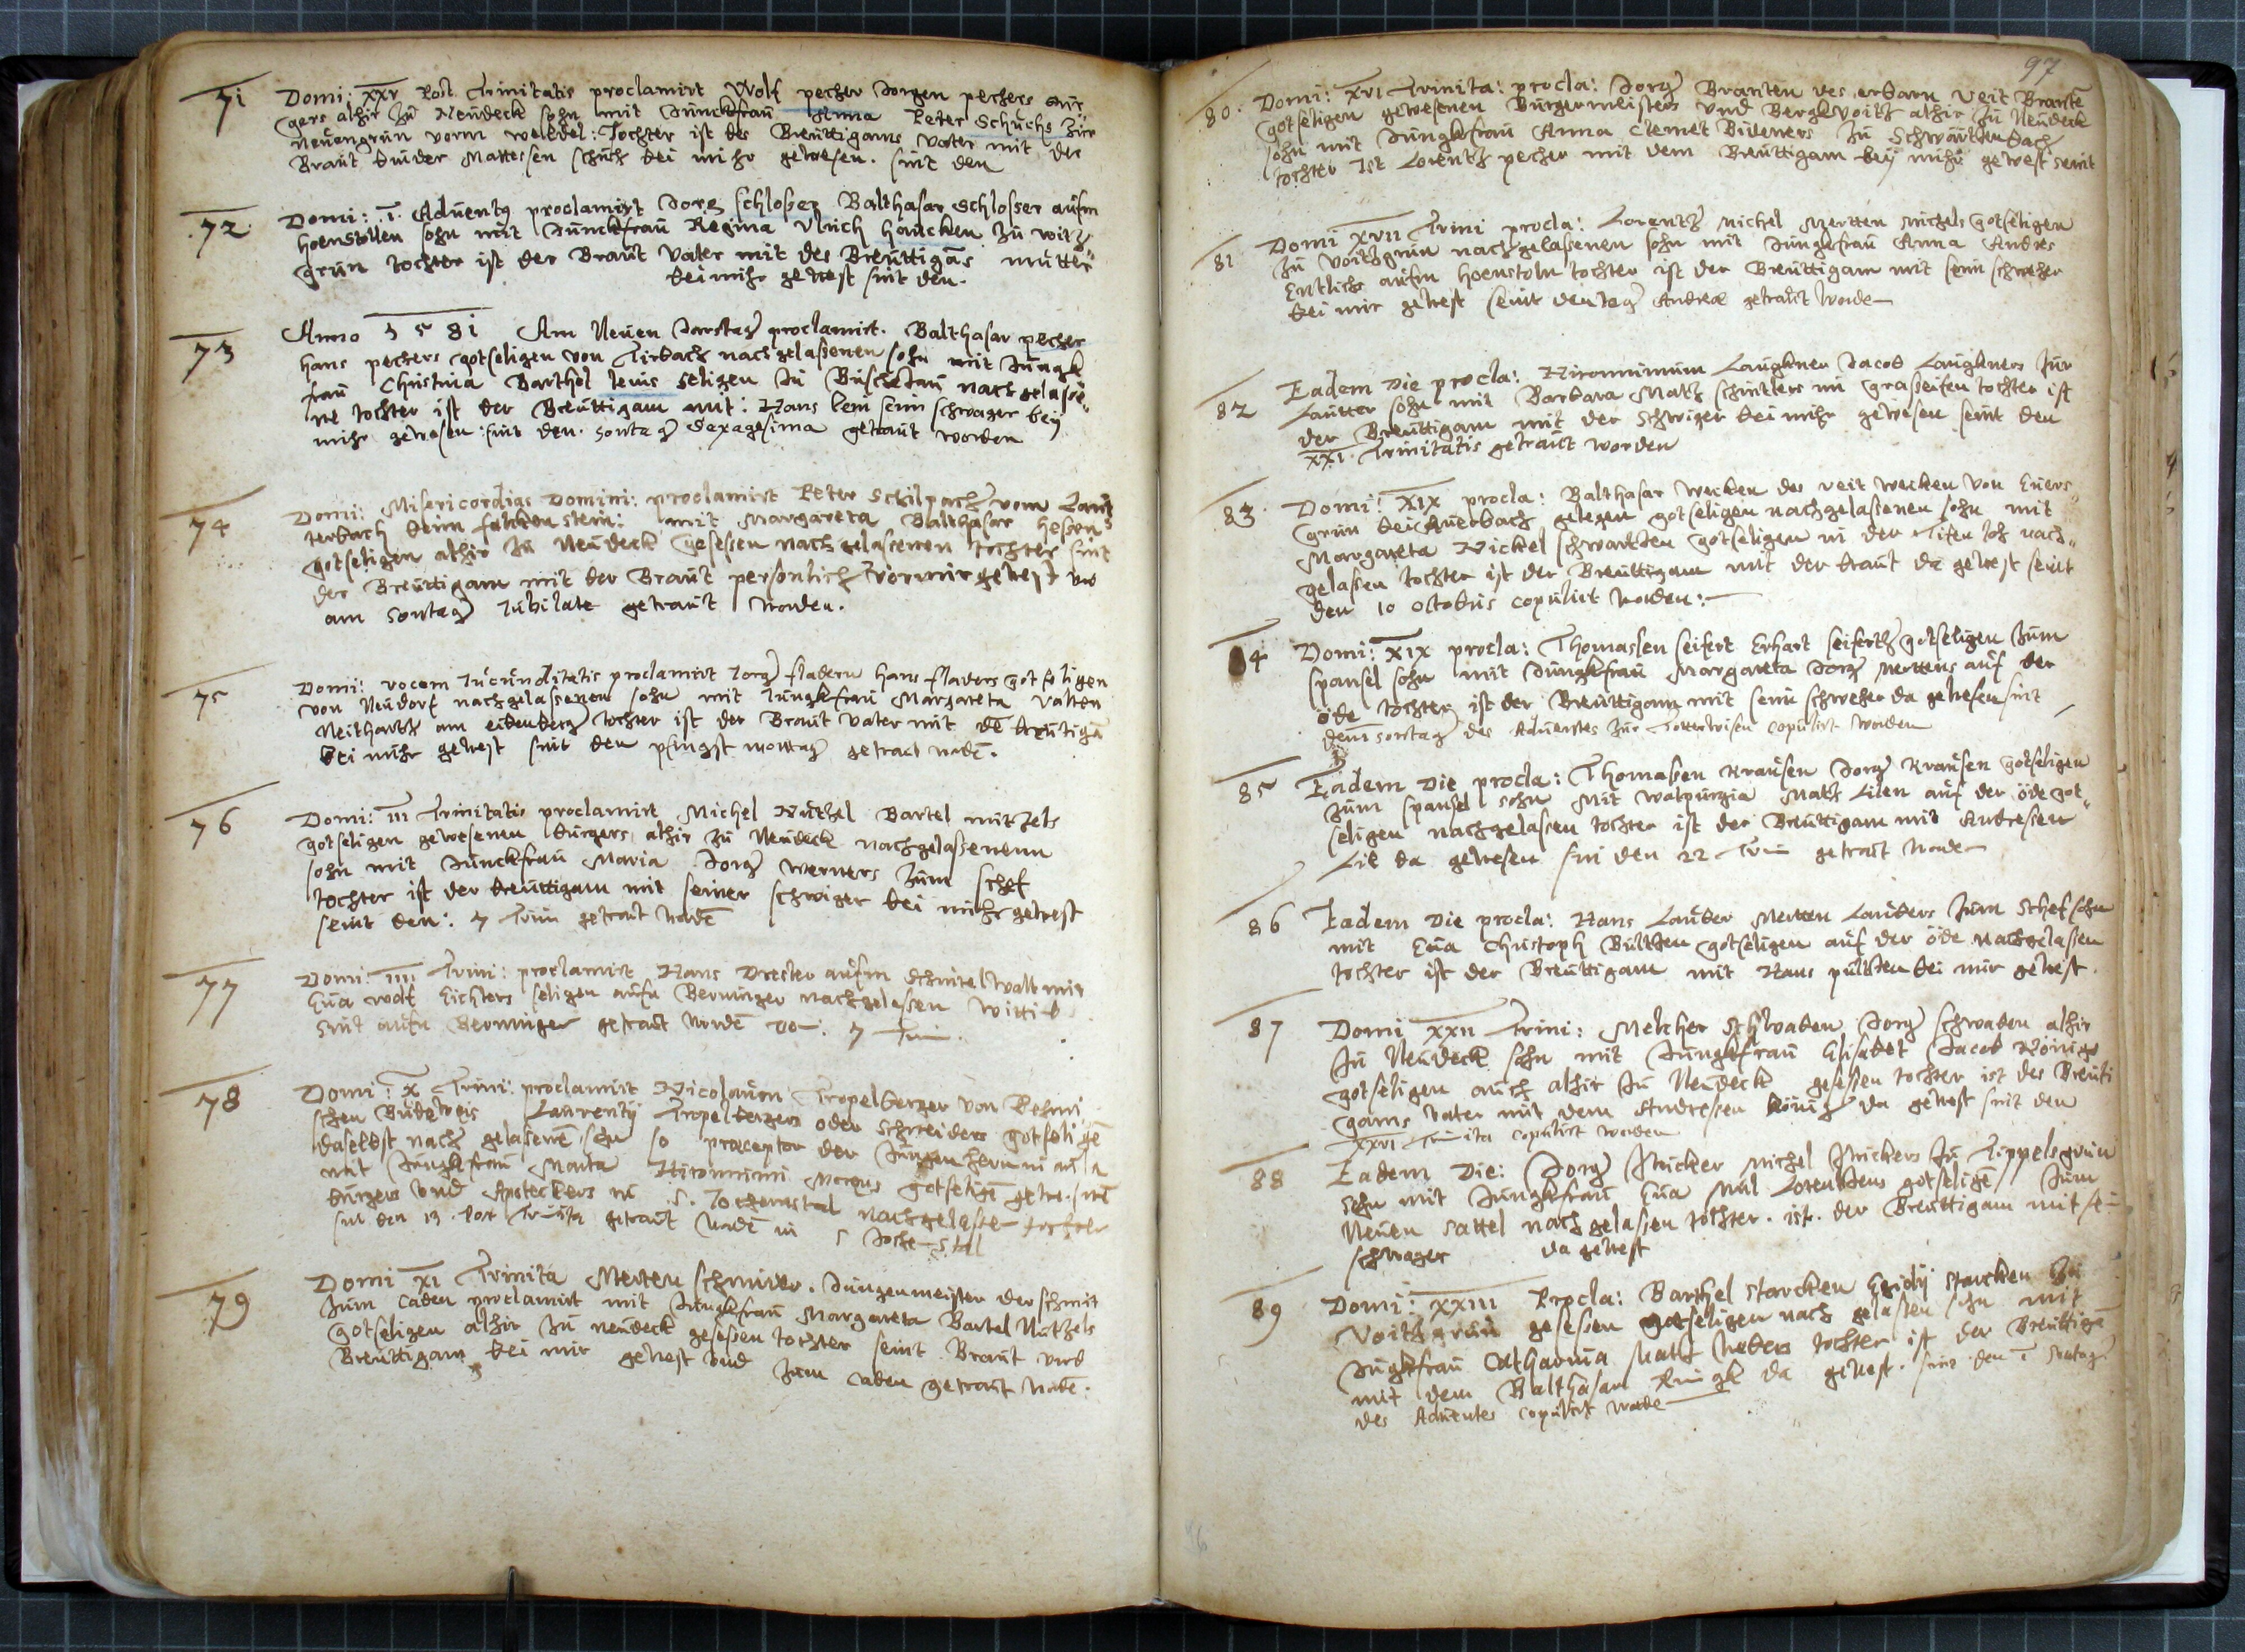 71 Domi: XXV Post Trinitatis proclamirt Wolf pecher Jorgen pechers bür
gers alhir zu Neudeck sohn mit Junckfrau Anna Peter Schuchs zur
Neuengrün vorm weltdel: Tochter ist des Breuttigams vater mit der
Braut bruder Mattessen schuch bei mihr gewesen. sint den
72 Domi: I Aduentg proclamirt Jorg schlosser Balthasar Schlosser aufm
hoenstollen sohn mit Junckfrau Regina Vlrich haucken zu voitz
grün tochter ist der Braut vater mit des Breuttigās mutter
bei mihr gewest sint den.
73 Anno 1581 Am Neuen Jarstag proclamirt. Balthasar pecher
hans pechers gotseligen von Tirbach nachgelassenen sohn mit Jungk
frau Christina Barthel leuis seligen zu nachgelasse
ne tochter ist der Breuttigam mit: Hans lein sein schwager bey
mihr gewesen sint den. sontag Sexagesima getraut worden
74 Domi: Misericordias Domini: proclamirt Peter Schilpach vom Laut
terbach beim falckenstein: mit Margareta Balthasar hessens
gotseligen alhir zu Neudeck gesessen nachgelassenen tochter sint
der Breuttigam mit der Braut personlich vor mir gewest vnd
am sontag Jubilate getraut worden.
75 Domi: vocem Jucunditatis proclamirt Jorg fladern hans fladers gotseligen
von Neudorf nachgelassenen sohn mit Jungkfrau Margareta Valten
Neithartz am eibenberg tochter ist der Braut vater mit dē breutigā
bei mihr gewest sint den pfingst montag getraut wordē.
76 Domi: III Trinitatis proclamirt Michel Nutzel Bartel nutzels
gotseligen gewesenen burgers alhir zu Neudeck nachgelassenenn
sohn mit Junckfrau Maria Jorg werners zum schef
tochter ist der breuttigam mit seiner schwiger bei mihr gewest
seint den: 7 Trini getraut wordē
77 Domi: IIII Trini: proclamirt Hans Drester aufm Schmelwalt mit
Eua wolf Eichlers seligen aufn Berninger nachgelassen wittib
sint aufn Berninger getraut wordē do: 7 Trin.
78 Domi: X Trini: proclamirt Nicolaum Tropelberger von Behmi
schen Budeweis Laurentij Tropelbergers oder schneiders gotseligē
daselbst nach gelassenē sohn so praeceptor der Jungen hern in
mit Jungkfrau Marta Hironimi gotseligē gewe.
burgers vnd Apoteckers in S. Jochemstal nachgelasse tochter
sint den 13. Post Trinita getraut wordē in S Jochemstal
79 Domi XI Trinita Merten schmider. Jungenmeister der schmit
zum Caden proclamirt mit Jungkfrau Margareta Bartel Nutzels
gotseligen alhir zu neudeck gesessen tochter seint Braut vnd
Breuttigam bei mir gewest vnd zum Caden getraut wordē.
97
80. Domi: XVI Trinita: procla: Jorg Branten des erbarn Veit Brantē
gotseligen gewesenen Burgermeisters vnd Bergkvoitz alhir zu Neudeck
sohn mit Jungkfrau Anna Clemēt Bideners zu Schwartzenbach
tochter Ist Lorentz pecher mit dem Breuttigam bey mihr gewest seint
81 Domi XVII Trini procla: Lorentz Michel Mertten Michels gotseligen
zu voitzgrün nachgelassenen sohn mit Jungkfrau Anna Andres
Entlichs aufm hoenstoln tochter ist der Breuttigam mit sein schweher
bei mir gewest seint den tag Andreae getraut worde
82 Eadem Die procla: Hironnimum Laugkner Jacob Laugkners zur
Lautter sohn mit Barbara Matz schintlers im graseifen tochter ist
der Breuttigam mit der Schwiger bei mihr gewesen seint den
XXI. Trinitatis getraut worden
83. Domi: XIX procla: Balthasar wecken des veit wecken von Euers
grün bei Auerbach gelegen gotseligen nachgelassenen sohn mit
Margareta Nickel schwartzen gotseligen in der Tifen loh nach
gelassen tochter ist der Breuttigam mit der braut da gewest seint
den 10 Octobris copulirt worden:
84 Domi: XIX procla: Thomassen seifert Erhart seifertz gotseligen zum
spansel sohn mit Jungkfrau Margareta Jorg Mertens auf der
öde tochter ist der Breuttigam mit sein schweher da gewesen sint
den 1 sontag des Aduentes zur copulirt worden
85 Eadem Die procla: Thomassen Krausen Jorg Krausen gotseligen
zum spansel sohn Mit walpurgia Matz Lilen auf der öde got
seligen nachgelassen tochter ist der Breuttigam mit Andressen
Lil da gewesen sin den 22 Trin getraut worden
86 Eadem Die procla: Hans Lauber Merten Laubers zum Schef sohn
mit Eua Christoph Bultzen gotseligen auf der öde nachgelassen
tochter ist der Breuttigam mit Hans pultzen bei mir gewest.
87 Domi XXII Trini: Melcher Schwaben Jorg schwaben alhir
zu Neudeck sohn mit Jungkfrau Elisabet Jacob Königs
gotseligen auch alhir zu Neudeck gesessen tochter ist des Breuti
gams vater mit dem Andressen König da gewest sint den
XXVI Trinita copulirt worden
88 Eadem Die: Jorg Michel zu Tippelsgrün
sohn mit Jungkfrau Eua Nicl Lorentzens gotseligē zum
Neuen sattel nach gelassen tochter. ist. der Breuttigam mit sei
schwager da gewest
89 Domi: XXIII Procla: Barthel starcken Egidij starcken zu
voitzgrün gesessen gotseligen nach gelassen sohn mit
Jungkfrau Catharina Matz webers tochter ist der Breuttigā
mit dem Balthasar da gewest. sint den I sontag
des Aduentes copulirt worde